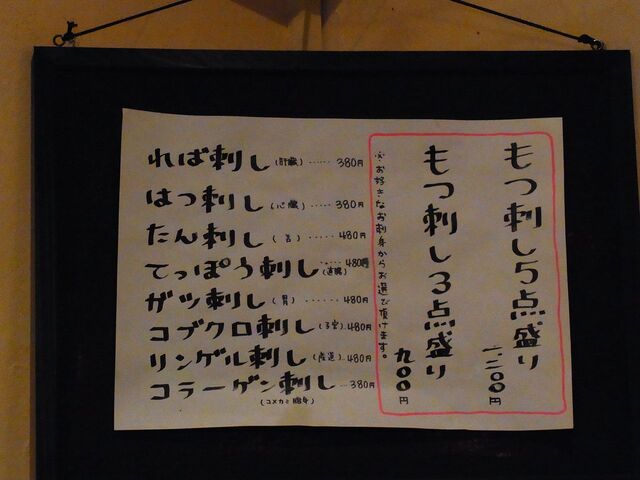 もつ刺し5点盛り
一二〇〇円
もつ刺し3点盛り
九〇〇円
※お好きなお刺身からお選び頂けます。
れば刺し(肝臓)……380円
はつ刺し(心臓)……380円
たん刺し(舌)……480円
てっぽう刺し(直腸)……480円
ガツ刺し(胃)……480円
コブクロ刺し(子宮)480円
リンゲル刺し(産道)…480円
コラーゲン刺し…380円
(コメカミ)